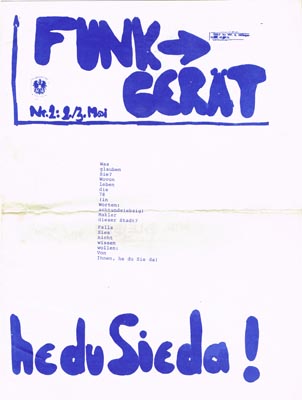 FUNK
GERÄT
Nr.2: 2/3. Mai
Was
glauben
Sie?
Wovon
leben
die
78
(in
Worten:
achtundsiebzig)
Makler
dieser Stadt?
Falls
Sies
nicht
wissen
wollen:
Von
Ihnen, he du Sie da!
he du Sie da!